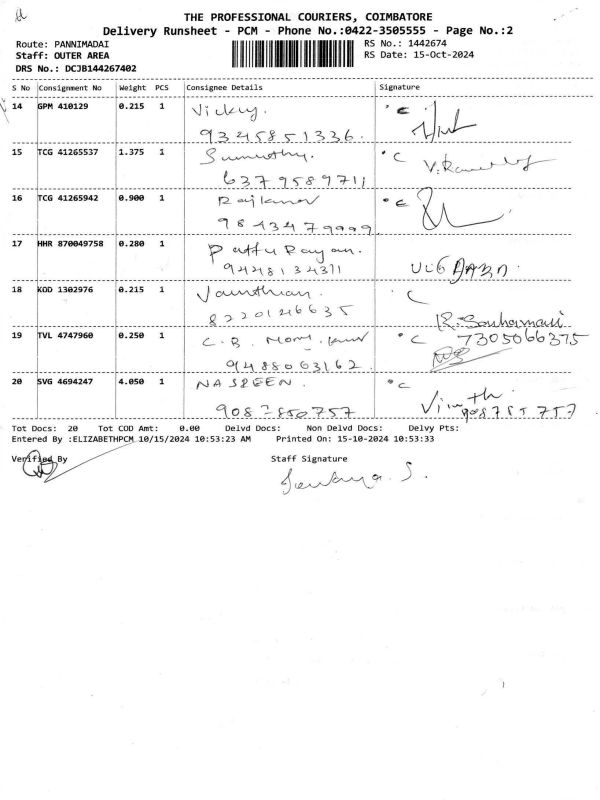 THE PROFESSIONAL COURIERS, COIMBATORE
Delivery Runsheet - PCM - Phone No.:0422-3505555 - Page No.:2
Route: PANNIMADAI RS No.: 1442674
Staff: OUTER AREA RS Date: 15-Oct-2024
DRS No.: DCJB144267402
S No Consignment No Weight PCS Consignee Details Signature
14 GPM 410129 0.215 1 Vicky. C
9345851336.
15 TCG 41265537 1.375 1 Sumathy. C
6379589711
16 TCG 41265942 0.900 1 Rajkumar C
9843479999
17 HHR 870049758 0.280 1
9448134311
18 KOD 1302976 0.215 1 C
8220146635
19 TVL 4747960 0.250 1 C.B. C 7305066375
9488063162
20 SVG 4694247 4.050 1 NASREEN. C
Tot Docs: 20 Tot COD Amt: 0.00 Delvd Docs: Non Delvd Docs: Delvy Pts:
Entered By :ELIZABETHPCM 10/15/2024 10:53:23 AM Printed On: 15-10-2024 10:53:33
Verified By Staff Signature